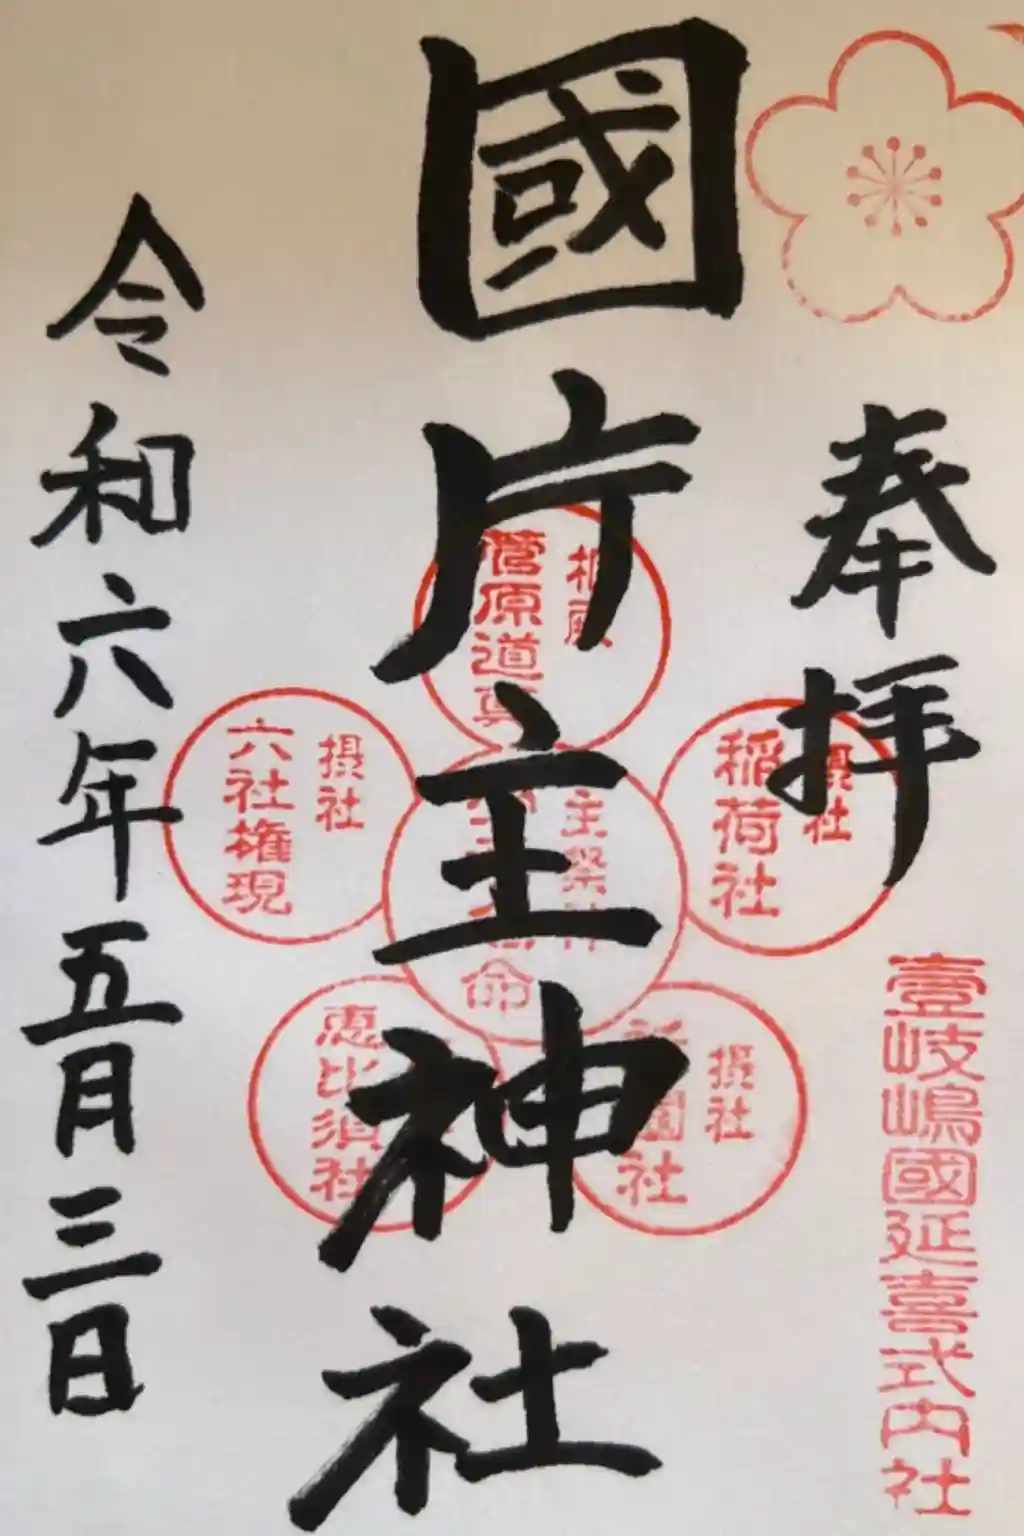 奉拝
壹岐嶋國延喜式内社
國片主神社
令和六年五月三日
相殿
菅原道真
摂社
稲荷社
主祭神
命
摂社
六社権現
摂社
園社
恵比須社